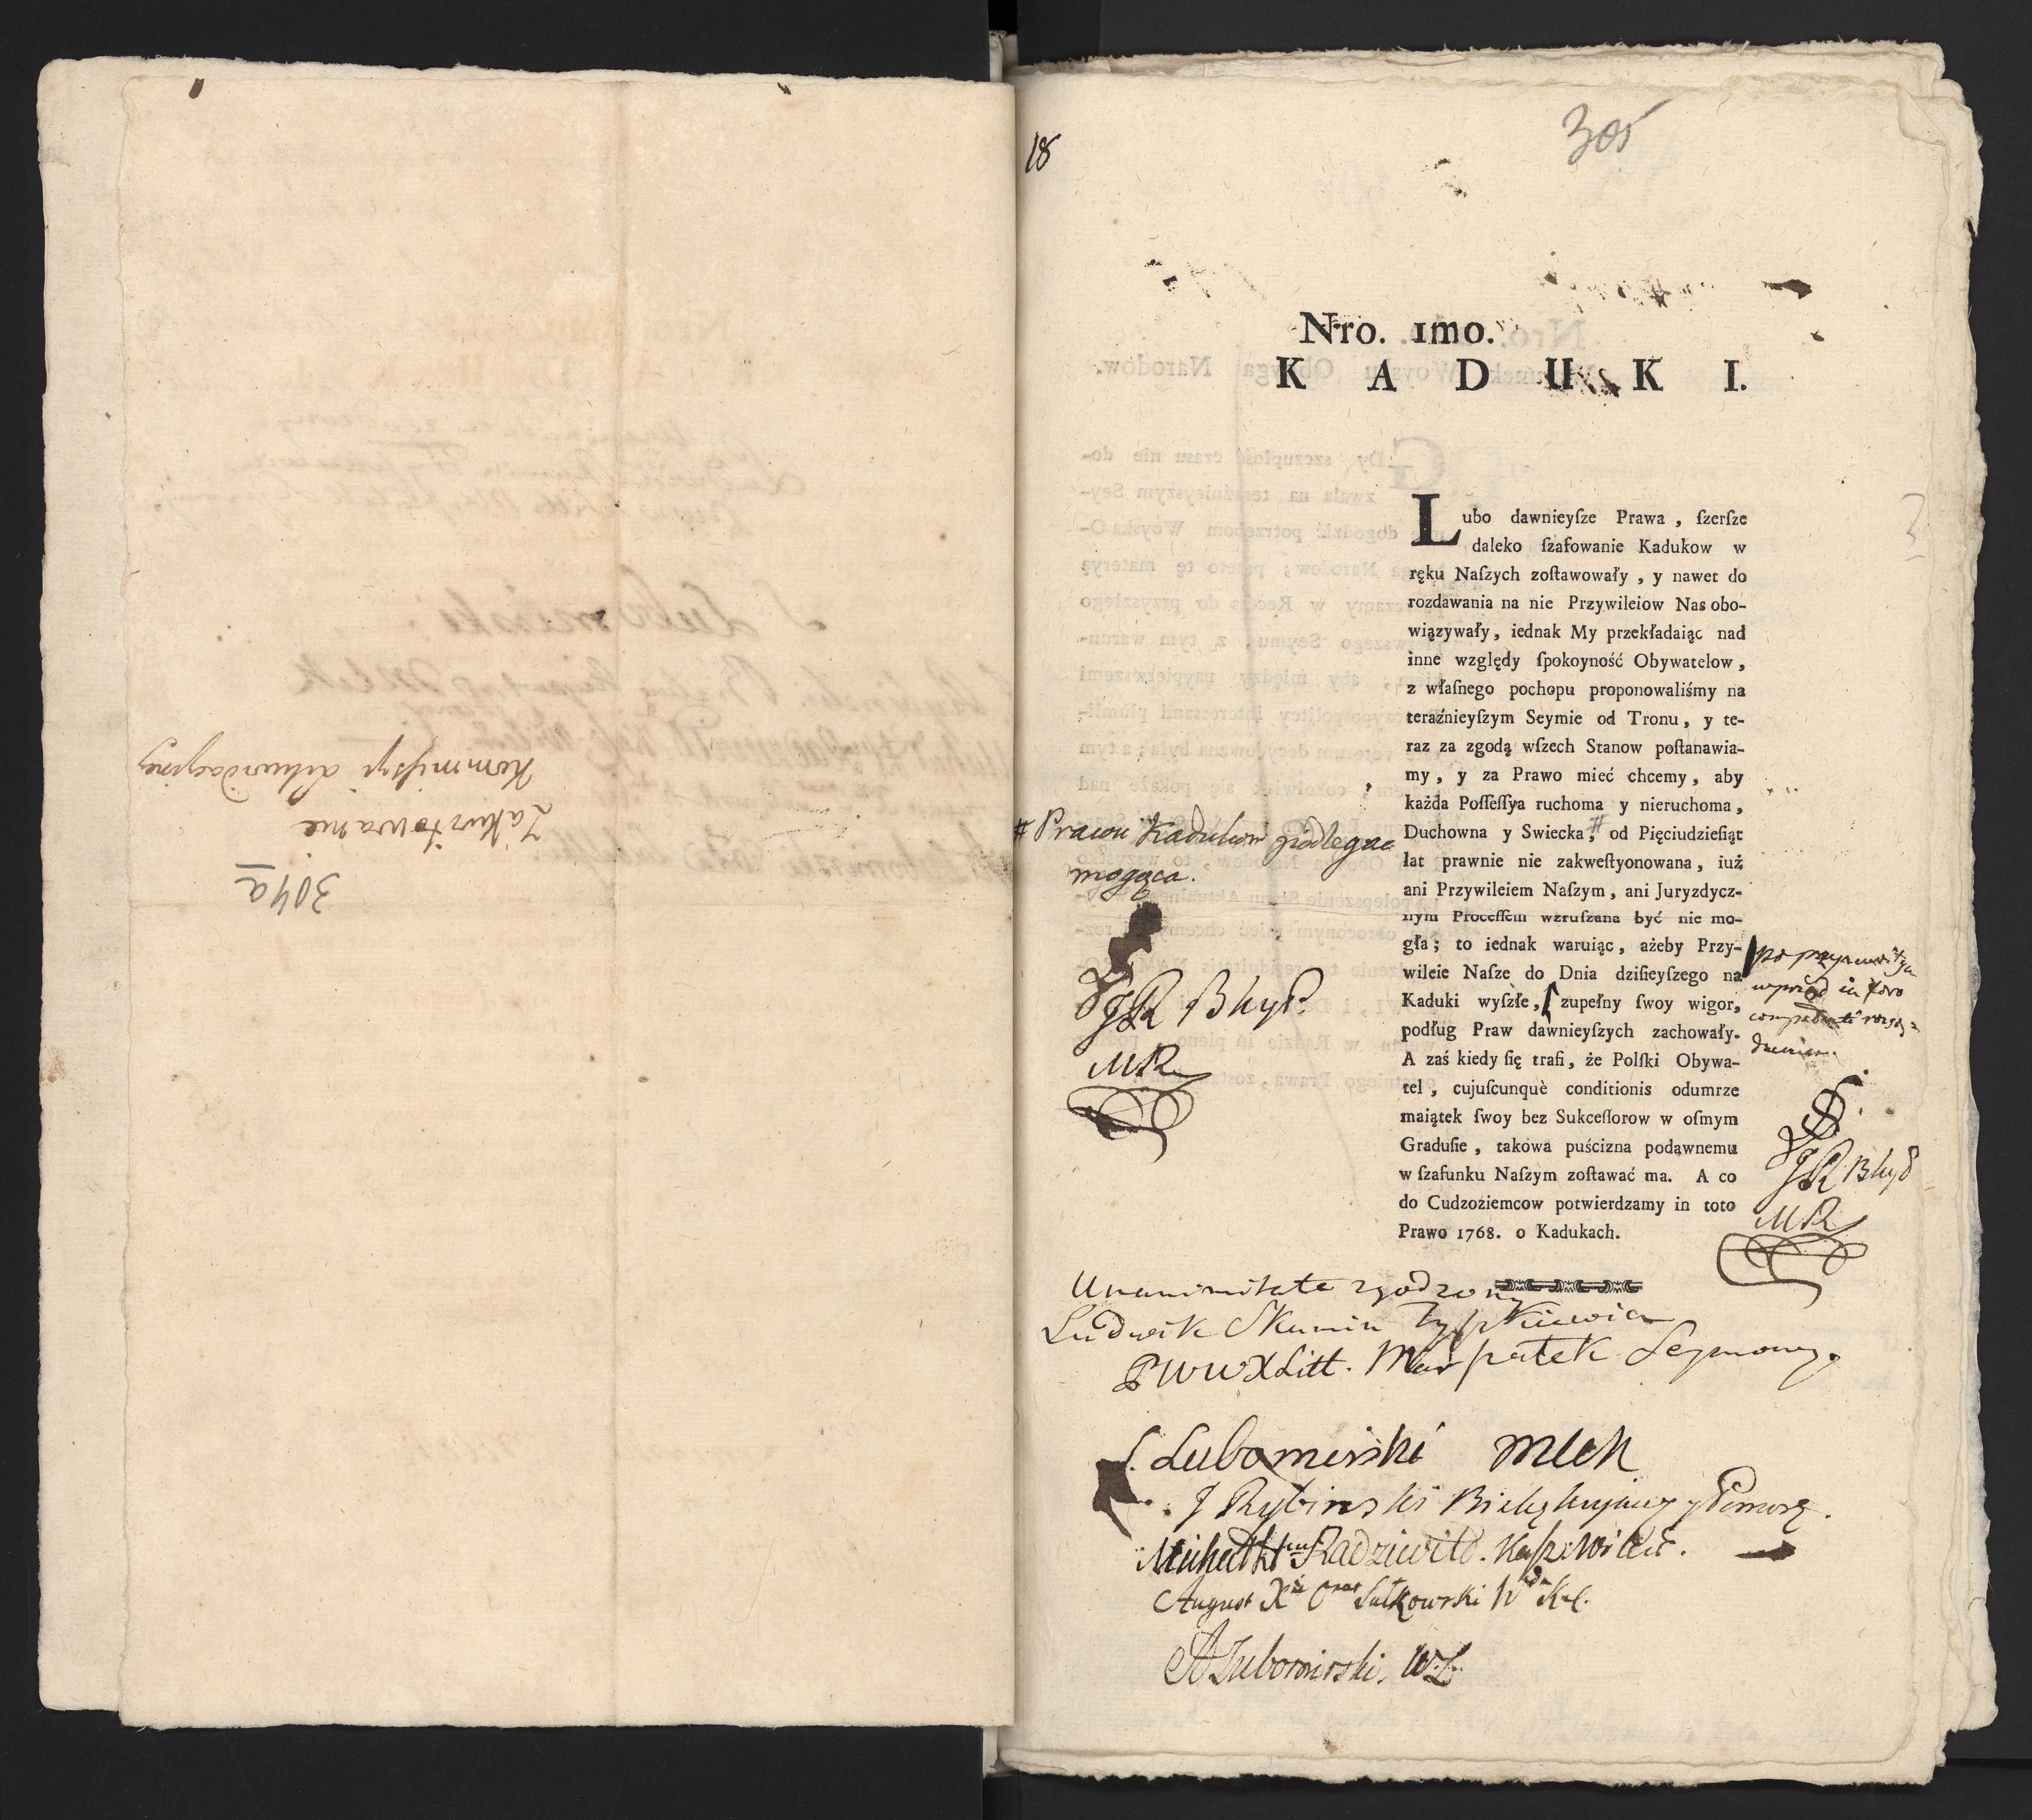 304a
Zakwitowanie
Kommissyi Likwidacyiney
18
305
Nro. 1mo.
K A D U K I.
Lubo dawnieyſze Prawa , ſzerſze
daleko ſzafowanie Kadukow w
ręku Naſzych zoſtawowały , y nawet do
rozdawania na nie Przywileiow Nas obo-
wiązywały , iednak My przekładaiąc nad
inne względy ſpokoyność Obywatelow ,
z właſnego pochopu proponowaliśmy na
teraźnieyſzym Seymie od Tronu , y te-
raz za zgodą wſzech Stanow poſtanawia-
my , y za Prawo mieć chcemy , aby
każda Poſſeſſya ruchoma y nieruchoma ,
Duchowna y Swiecka, # od Pięciudzieſiąt
lat prawnie nie zakweſtyonowana , iuż
ani Przywileiem Naſzym , ani Juryzdycz-
nym Proceſſem wzruſzana być nie mo-
gła ; to iednak waruiąc , ażeby Przy-
wileie Naſze do Dnia dziſieyſzego na
Kaduki wyſzłe, zupełny ſwoy wigor,
podług Praw dawnieyſzych zachowały.
A zaś kiedy ſię trafi , że Polſki Obywa-
tel , cujuſcunquè conditionis odumrze
maiątek ſwoy bez Sukceſſorow w oſmym
Graduſie , takowa puścizna podawnemu
w ſzafunku Naſzym zoſtawać ma. A co
do Cudzoziemcow potwierdzamy in toto
Prawo 1768. o Kadukach.
# Prawu Kadukom podlegac
mogąca.
JR BkyP.
MR
po
wprzod in foro
JR BkyP
MR
Unanimitate zgodzony
Ludwik Skumin Tyszkiewicz
PWWXLitt. Marszałek Seymowy.
S. Lubomirski MWK
J Rybinski Bisk. Kujawy y Pomorz.
Michał Radziwiłł. Kasz: Wileń.
August Xże Sułkowski Wda Kal.
A Lubomirski. W.L.